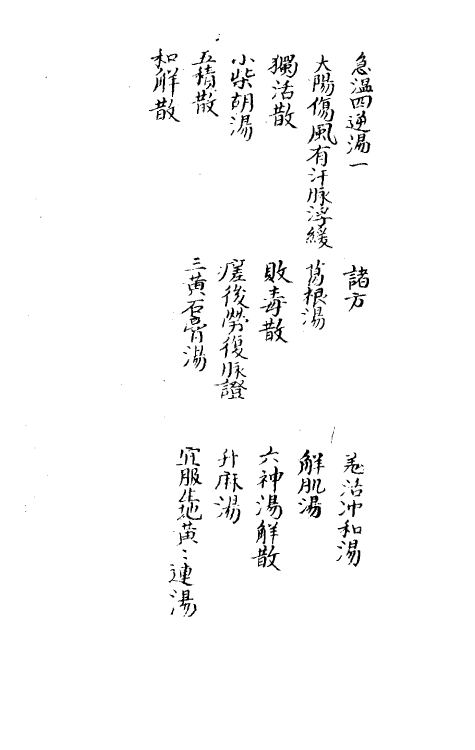 急温四逆湯一
諸方
羌活冲和湯
大陽傷風有汗脉浮緩
葛根湯
解肌湯
獨活散
敗毒散
六神湯解散
小柴胡湯
瘥後勞復脉證
升麻湯
五積散
三黃石膏湯
宜服生地黃〻連湯
和解散